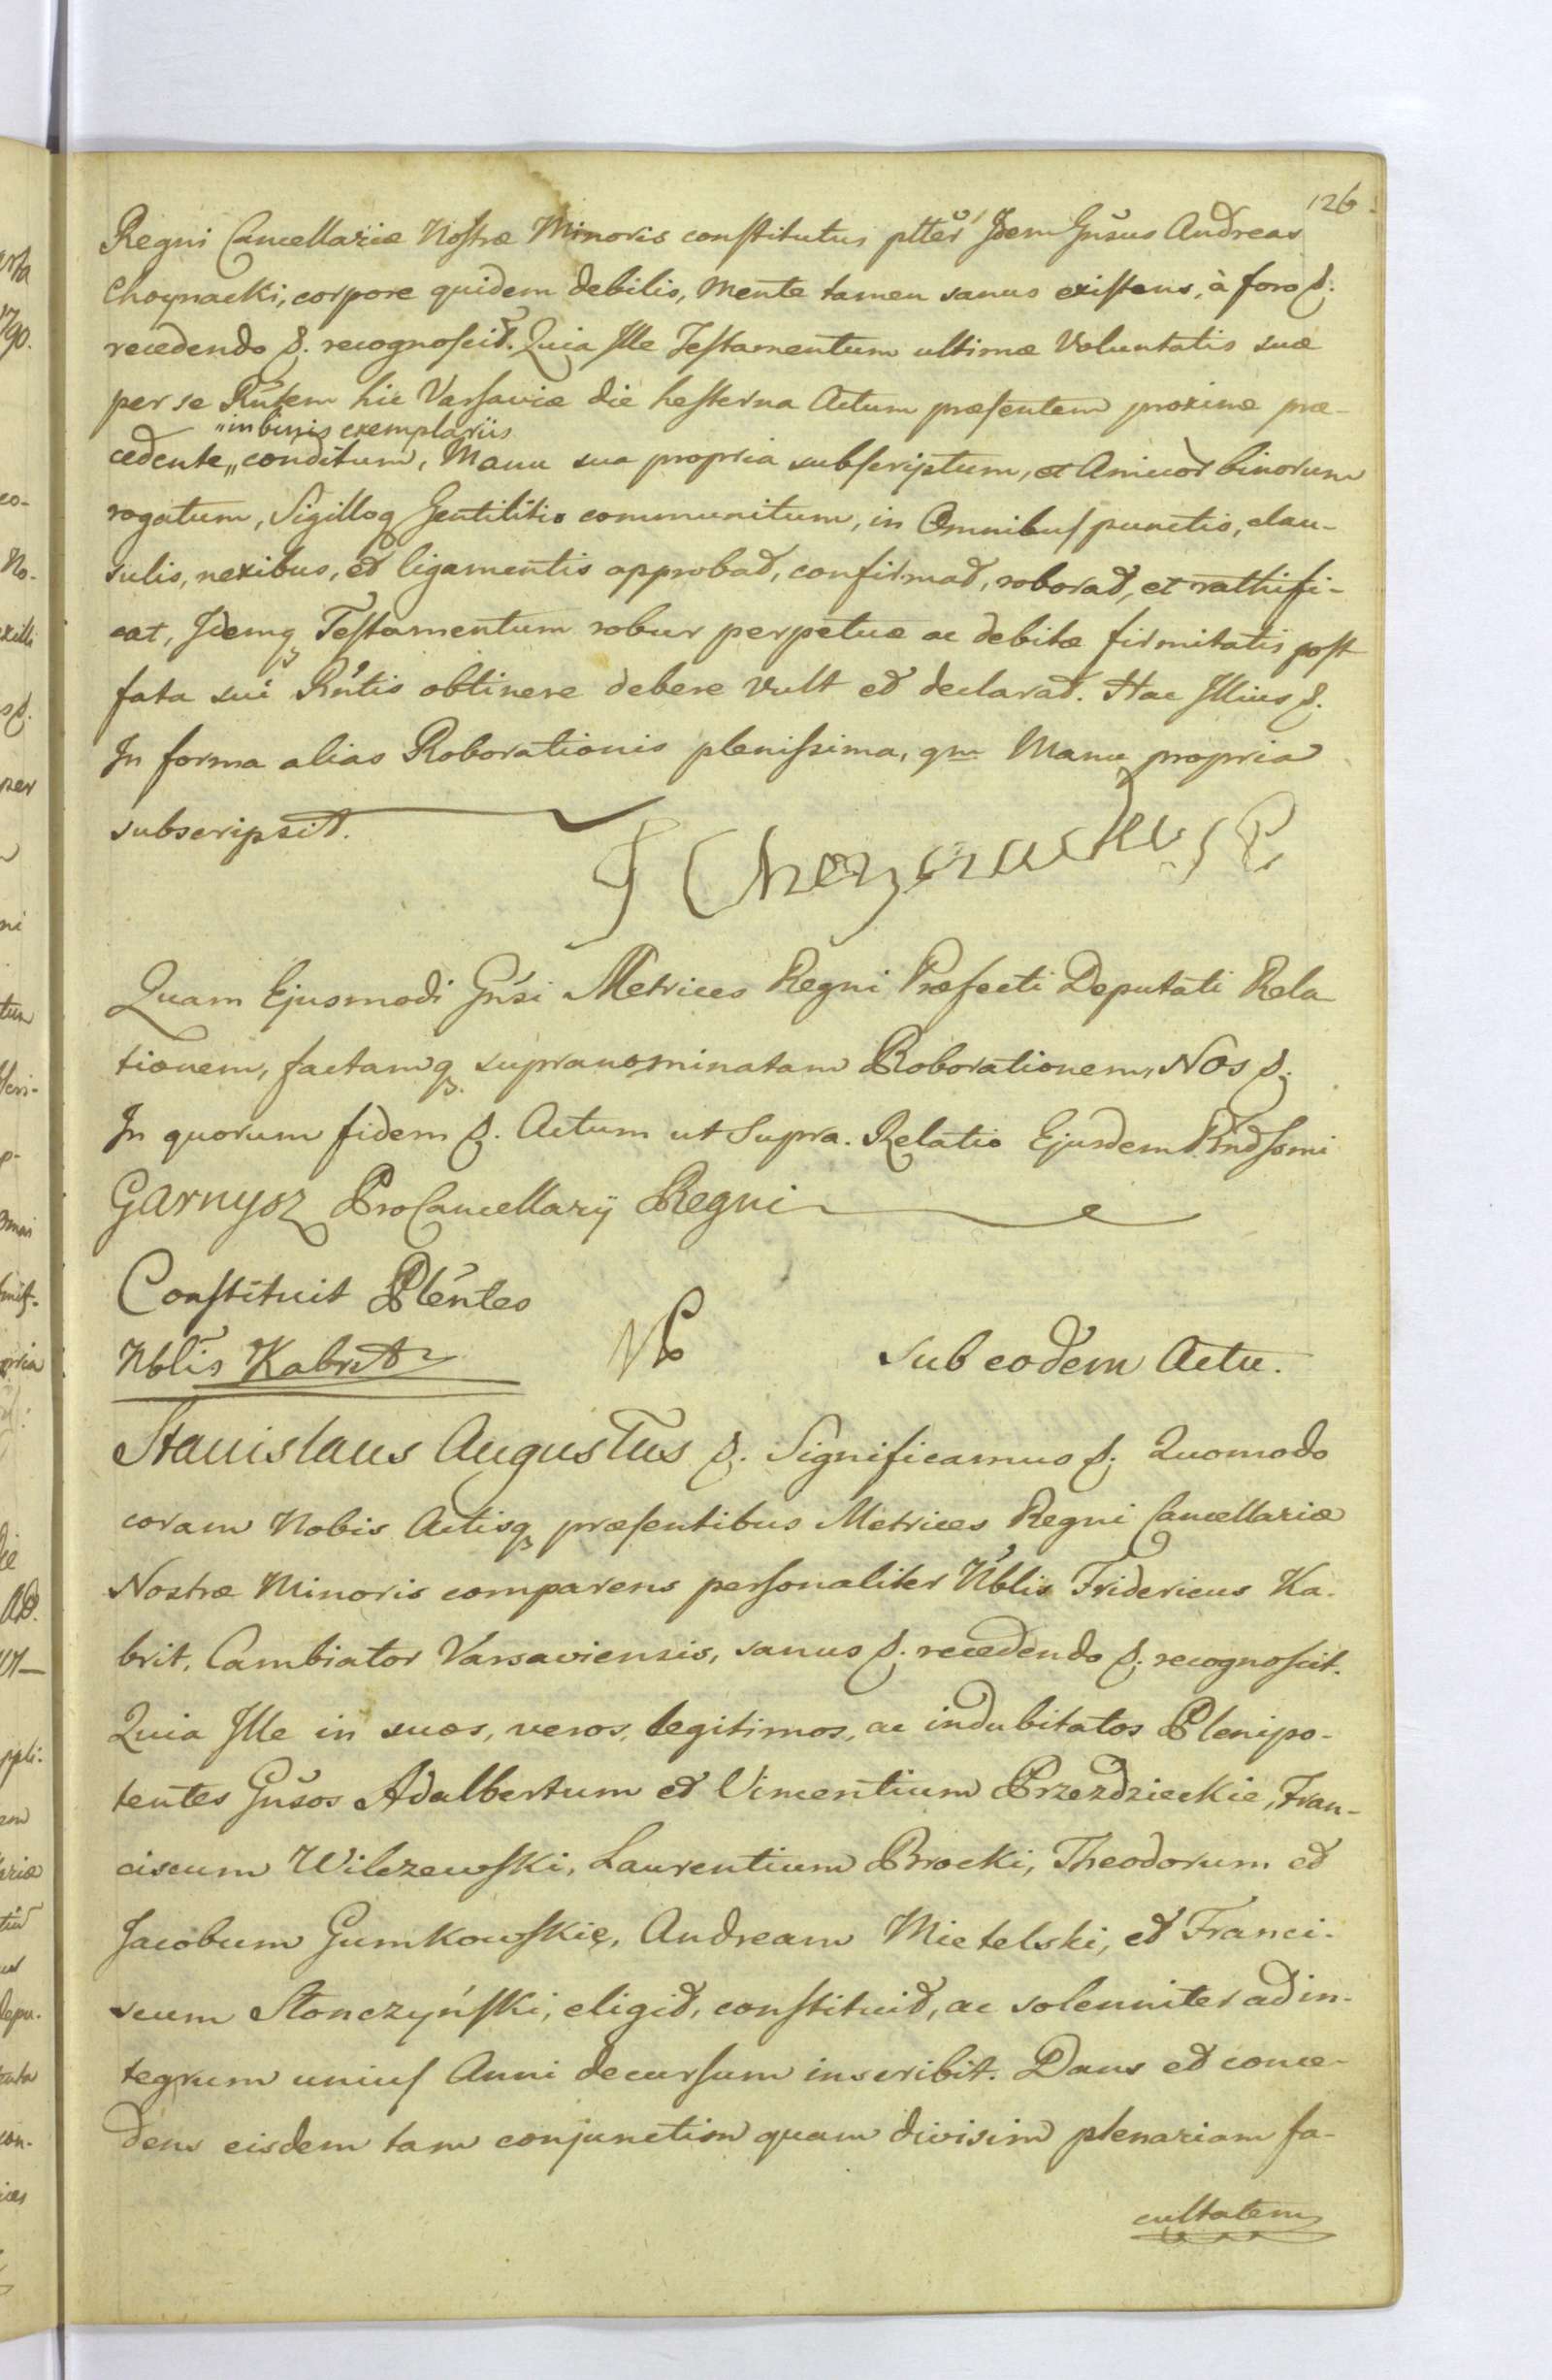 126.
Regni Cancellariæ Nostræ Minoris constitutus pltter Idem Gnsus Andreas
Choynacki, corpore quidem debilis, Mente tamen sanus existens, à foro &.
recedendo &. recognoscit. Quia Ille Testamentum ultimæ Voluntatis suæ
per se Rntem hic Varsaviæ die hesterna Actum præsentem proxime præ-
„in binis exemplariis
cedente„ conditum, Manu sua propria subscriptum, et Amicor binorum
rogatum, Sigilloq Gentilitio communitum, in Omnibus punctis, clau-
sulis, nexibus, et ligamentis approbat, confirmat, roborat, et rathifi-
cat, Idemq Testamentum robur perpetuæ ac debitæ firmitatis post
fata sui Rntis obtinere debere Vult et declarat. Hac Illius &.
In forma alias Roborationis plenissima, qm Manu propria
subscripsit.
Quam Ejusmodi Gnsi Metrices Regni Præfecti Deputati Rela-
tionem, factamq supranominatam Roborationem, Nos &.
In quorum fidem &. Actum ut Supra. Relatio Ejusdem Rndssmi
Garnysz ProCancellarij Regni
Constituit Plentes
Nblis Kabrit
Sub eodem Actu.
Stanislaus Augustus &. Significamus &. Quomodo
coram Nobis Actisq præsentibus Metrices Regni Cancellariæ
Nostræ Minoris comparens personaliter Nblis Fridericus Ka-
brit, Cambiator Varsaviensis, sanus &. recedendo &. recognoscit.
Quia Ille in suos, veros, legitimos, ac indubitatos Plenipo-
tentes Gnsos Adalbertum et Vincentium Przezdzieckie, Fran-
ciscum Wilczewski, Laurentium Brocki, Theodorum et
Jacobum Gumkowskię, Andream Mietelski, et Franci-
scum Słonczyński, eligit, constituit, ac solenniter ad in-
tegrum unius Anni decursum inscribit. Dans et conce-
dens eisdem tam conjunctim quam divisim plenariam fa-
cultatem